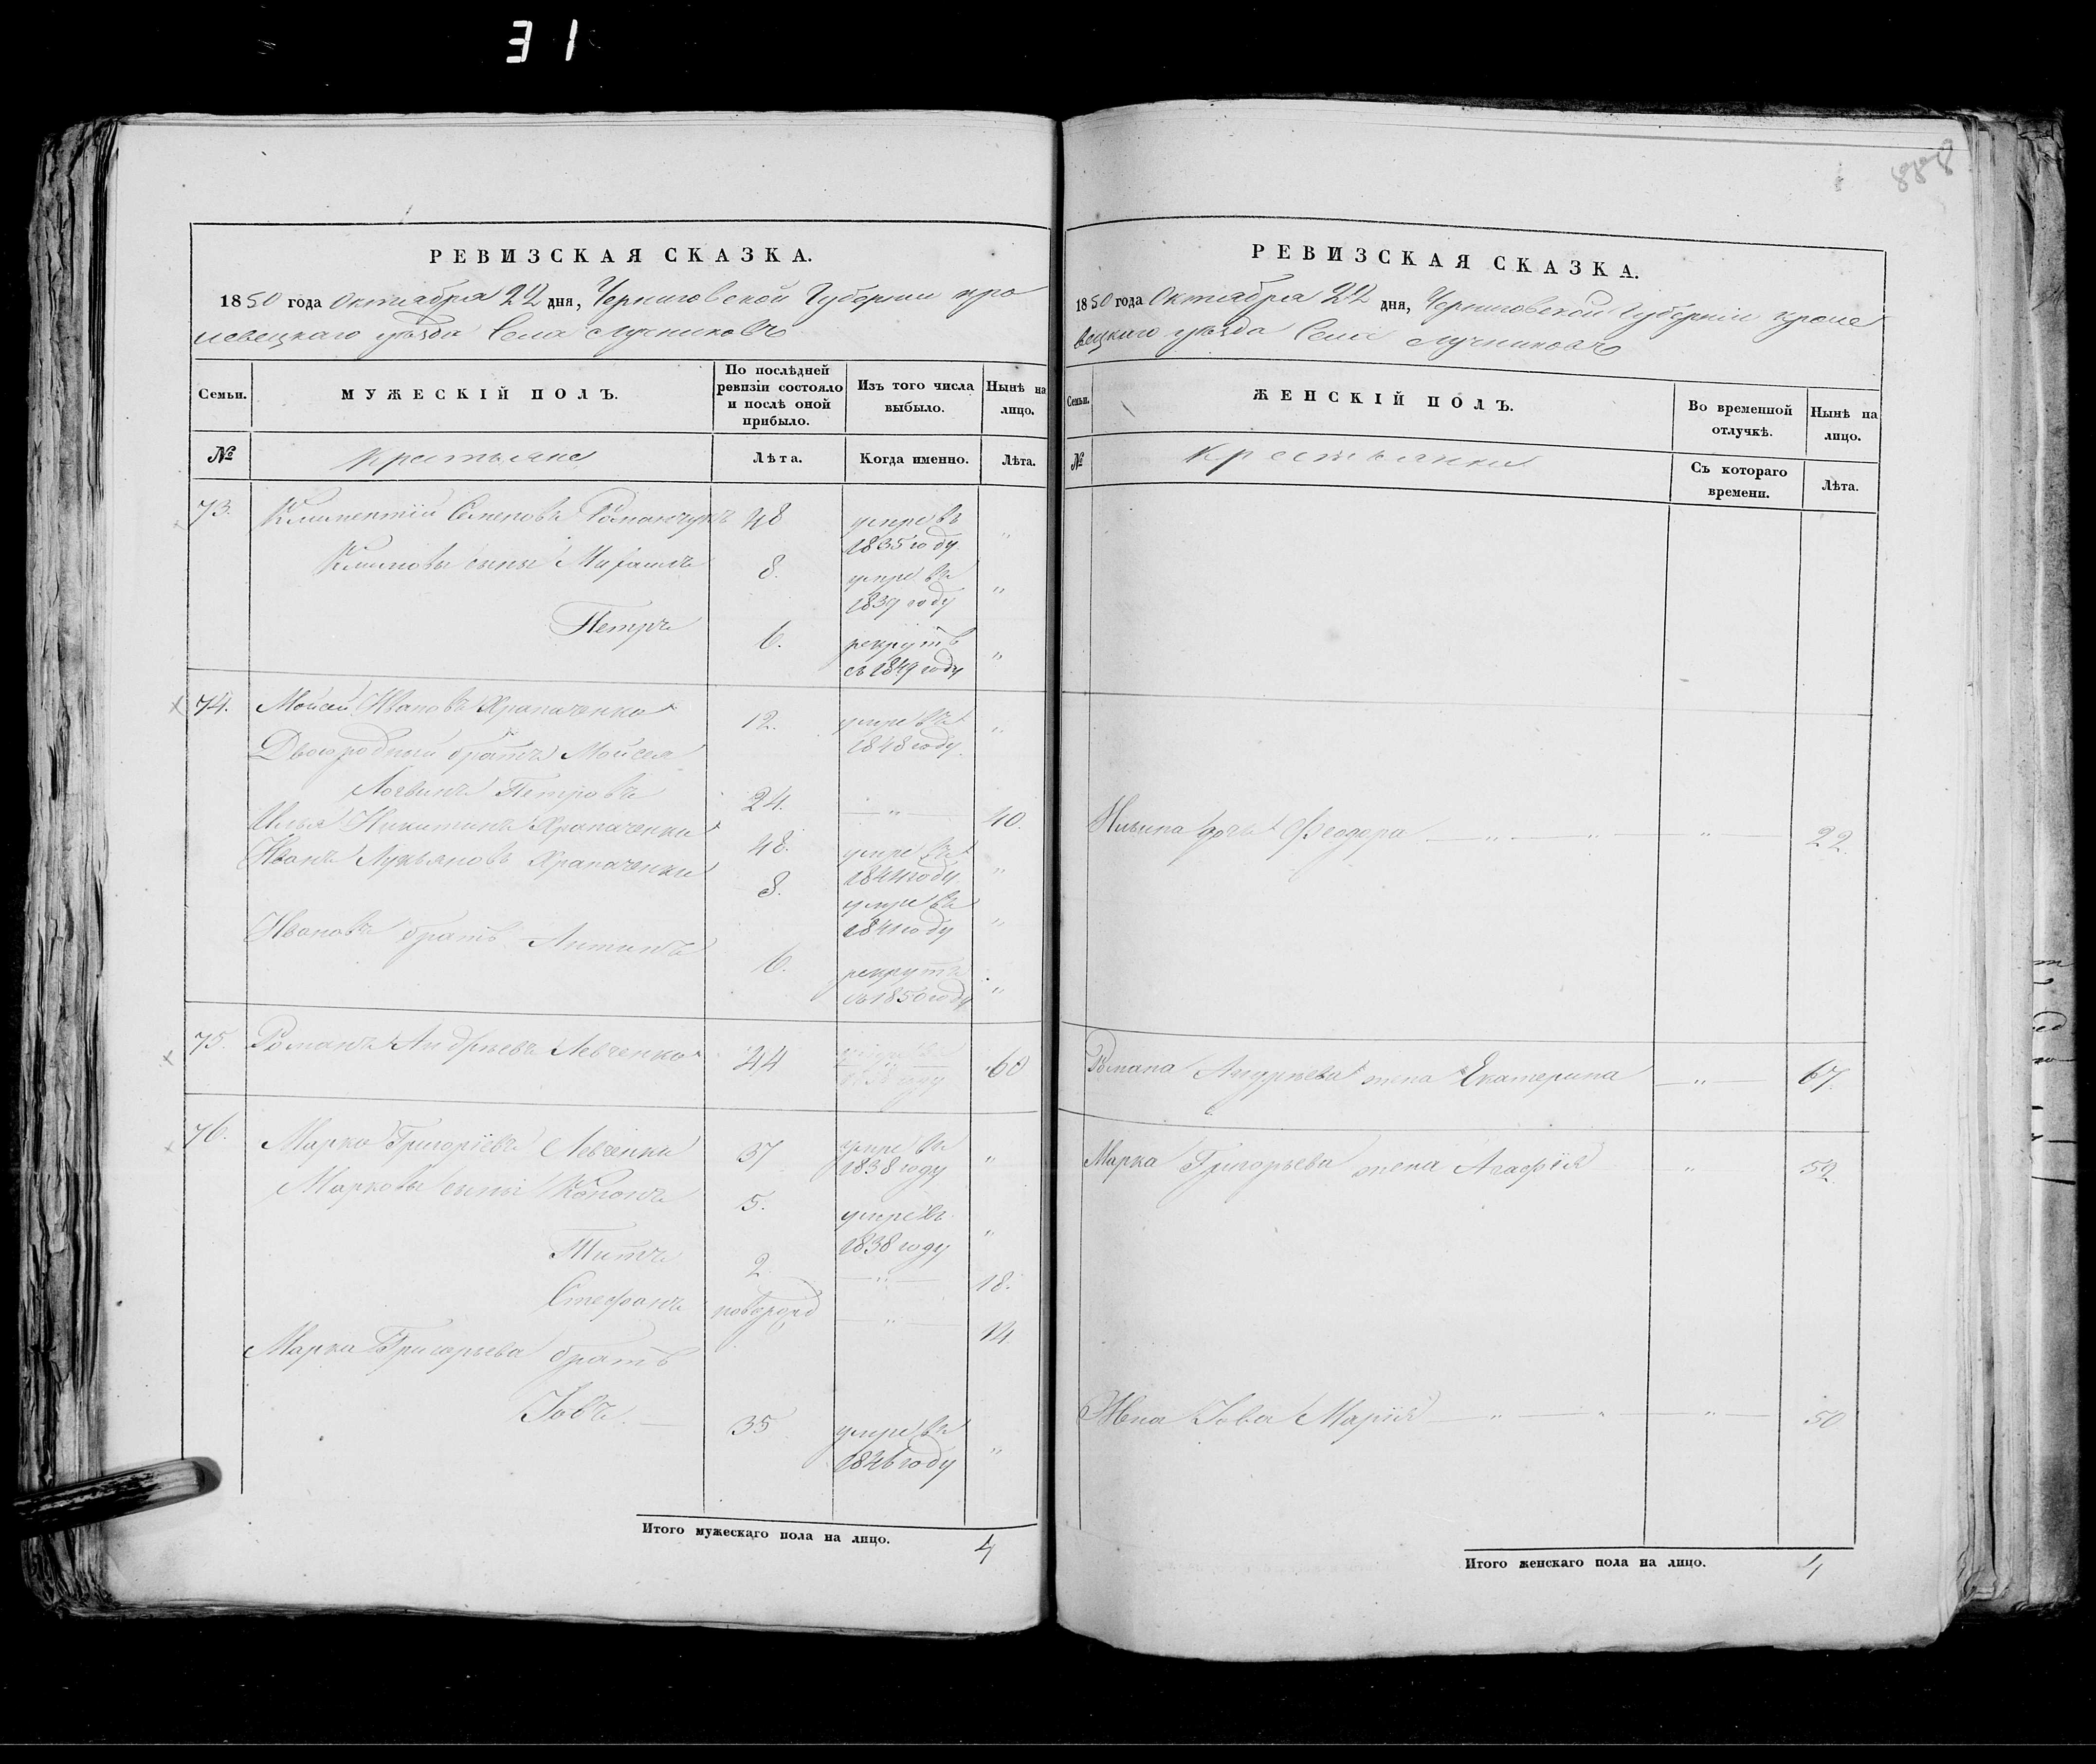 31
РЕВИЗСКАЯ СКАЗКА.
1850 года Октября 22 дня, Черниговской Губернии кро
левецкаго уѣзда Села Лучниковъ
Семьи.
МУЖЕСКІЙ ПОЛЪ.
По послѣдней ревизіи состояло и послѣ оной прибыло.
Изъ того числа выбыло.
Нынѣ на лицо.
№
Крестьяне
Лѣта.
Когда именно.
Лѣта.
73. Климентій Семеновъ Романчукъ 48 умре въ 1835 году "
Климовы сыны 8. умре въ 1839 году "
Петръ 6. рекрутъ съ 1849 году "
74. Мойсей Ивановъ Храпаченко 12. умре въ 1848 году "
Двоюродный братъ Мойсея
Логвинъ Петровъ 24. — " — 40.
Илья Никитинъ Храпаченки 48. умре въ 1844 году "
Иванъ Лукьяновъ Храпаченки 8. умре въ 1841 году "
Ивановъ братъ Антипъ 6. рекрутъ съ 1850 году "
75. Романъ Андрѣевъ Левченко 44 60
76. Марко Григоріевъ Левченки 37 умре въ 1838 году "
Марковы сыны Кононъ 5. умре въ 1838 году "
Титъ 2. — " — 18.
Стефанъ новорожд — " — 14
Марка Григорьева братъ
Іовъ. — 35 умре въ 1846 году "
Итого мужескаго пола на лицо. 4
888
РЕВИЗСКАЯ СКАЗКА.
1850 года Октября 22 дня, Черниговской Губерніи кроле
вецкаго уѣзда Села Лучниковъ
Семьи.
ЖЕНСКІЙ ПОЛЪ.
Во временной отлучкѣ.
Нынѣ на лицо.
№
Крестьянки
Съ котораго времени.
Лѣта.
Ильина дочь Феодора — " — " — " — 22.
Романа Андрѣева жена Екатерина — " — 67.
Марка Григорьева жена Агафія " 52.
Жена Іова Марія — " — " — " — 50
Итого женскаго пола на лицо. 4